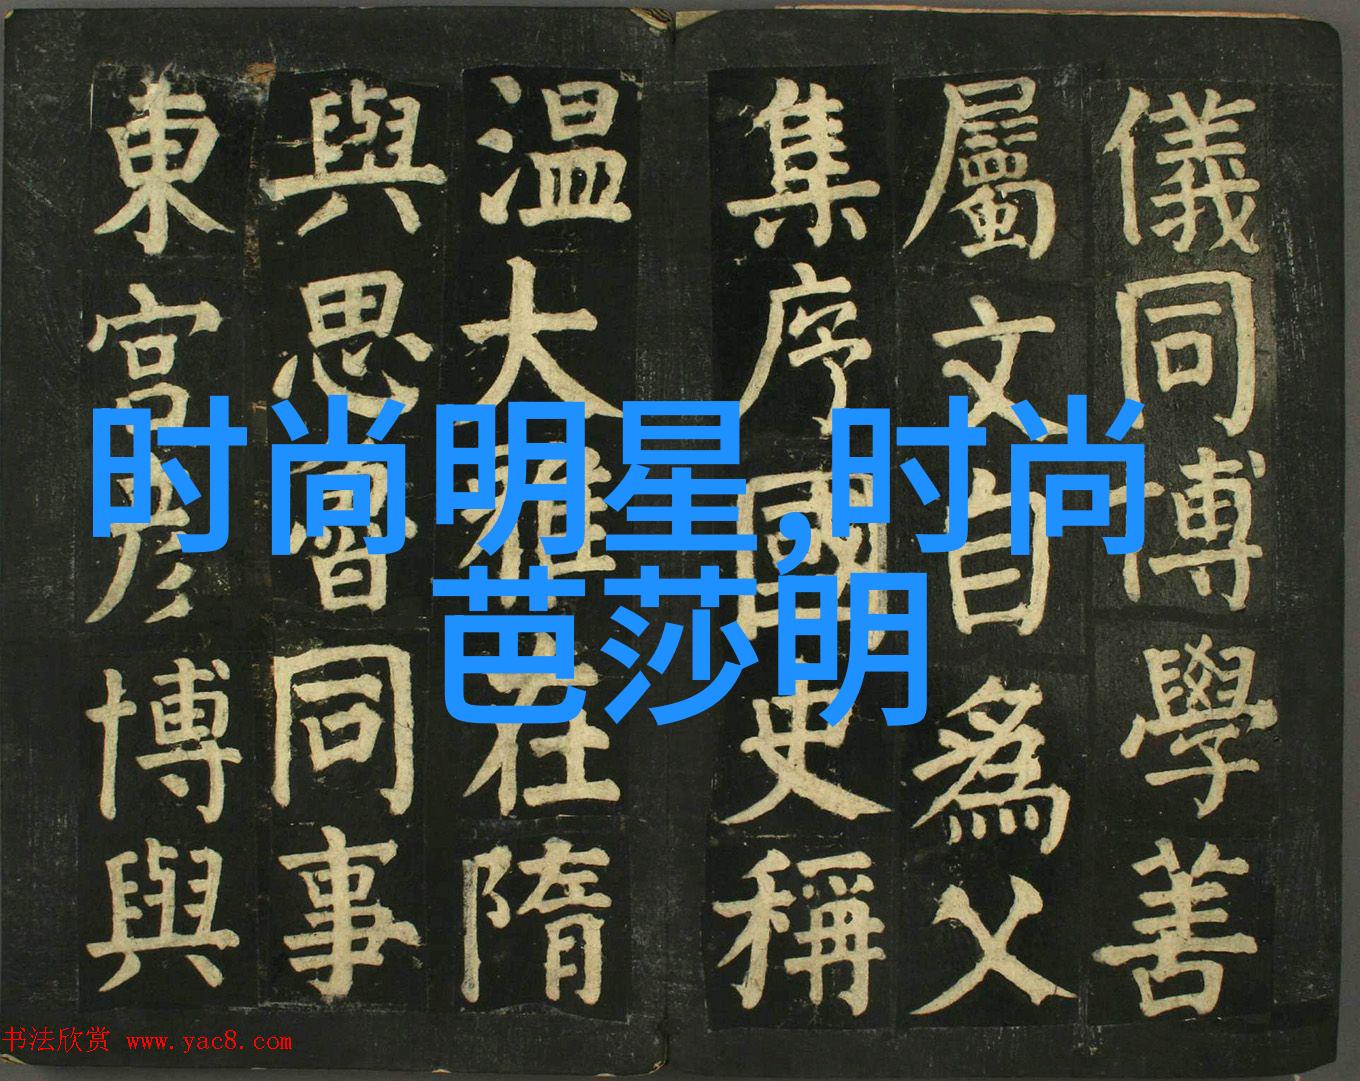 儀同博學善
屬文自為父
集序國史稱
温大雅在隋
與思魯同事
東宫彦博與
时尚明星,时尚
芭莎明
书法欣赏 www.yac8.com